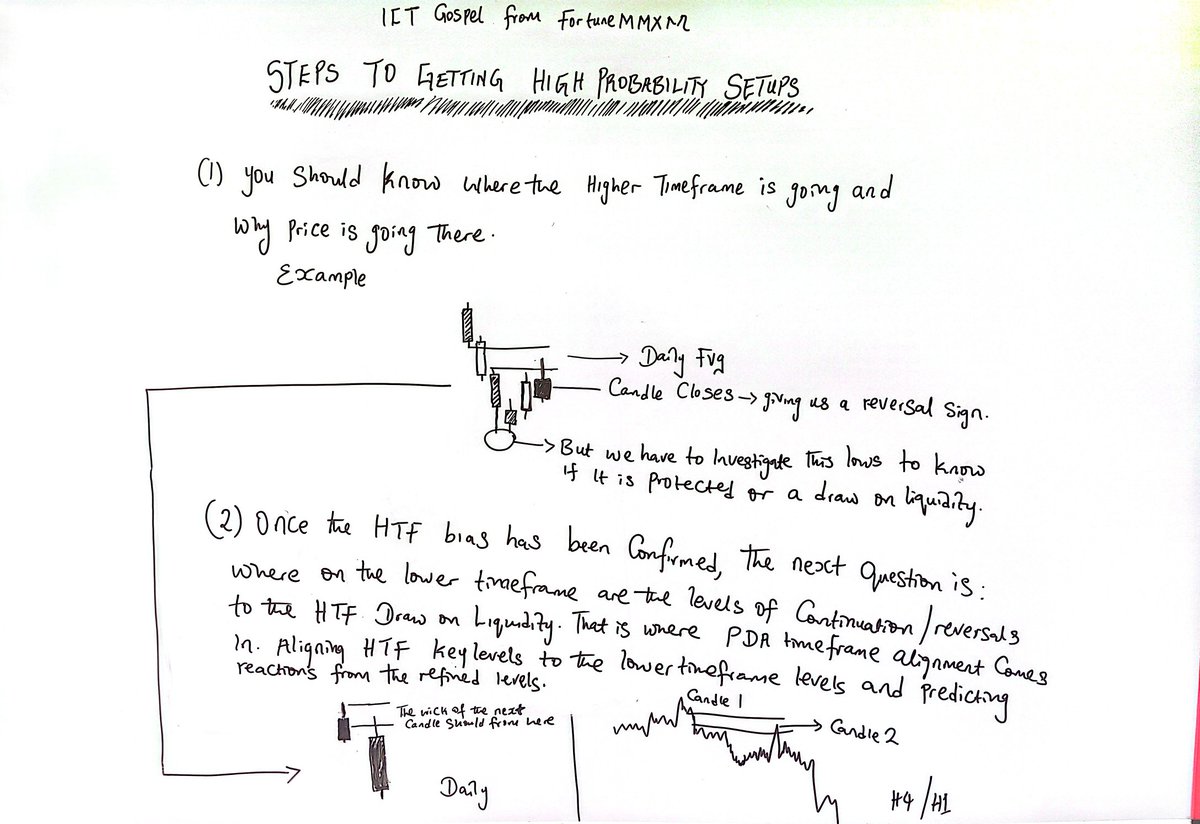 ICT Gospel from FortuneMMXM
STEPS TO GETTING HIGH PROBABILITY SETUPS
(1) you should know where the Higher Timeframe is going and
why price is going there.
Example
Daily Fvg
Candle Closes → giving us a reversal sign.
But we have to investigate this lows to know
if it is protected or a draw on liquidity.
(2) Once the HTF bias has been Confirmed, the next question is:
where on the lower timeframe are the levels of Continuation/reversals
to the HTF Draw on Liquidity. That is where PDA timeframe alignment Comes
in. Aligning HTF key levels to the lower timeframe levels and predicting
reactions from the refined levels.
The wick of the next
Candle should from here
Daily
Candle 1
Candle 2
H4/H1